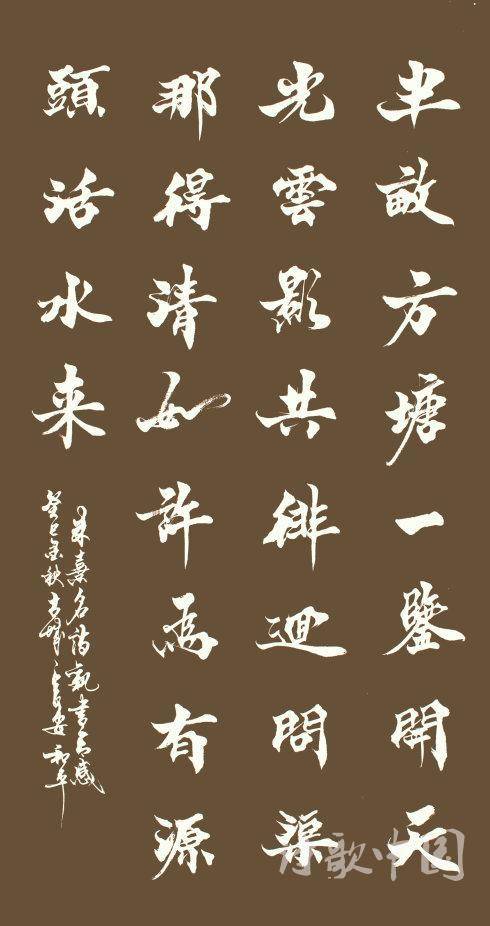 半畝方塘一鑒開天
光雲影共徘迴問渠
那得清如許為有源
頭活水来
朱熹名詩觀書有感
癸巳金秋
歌中国